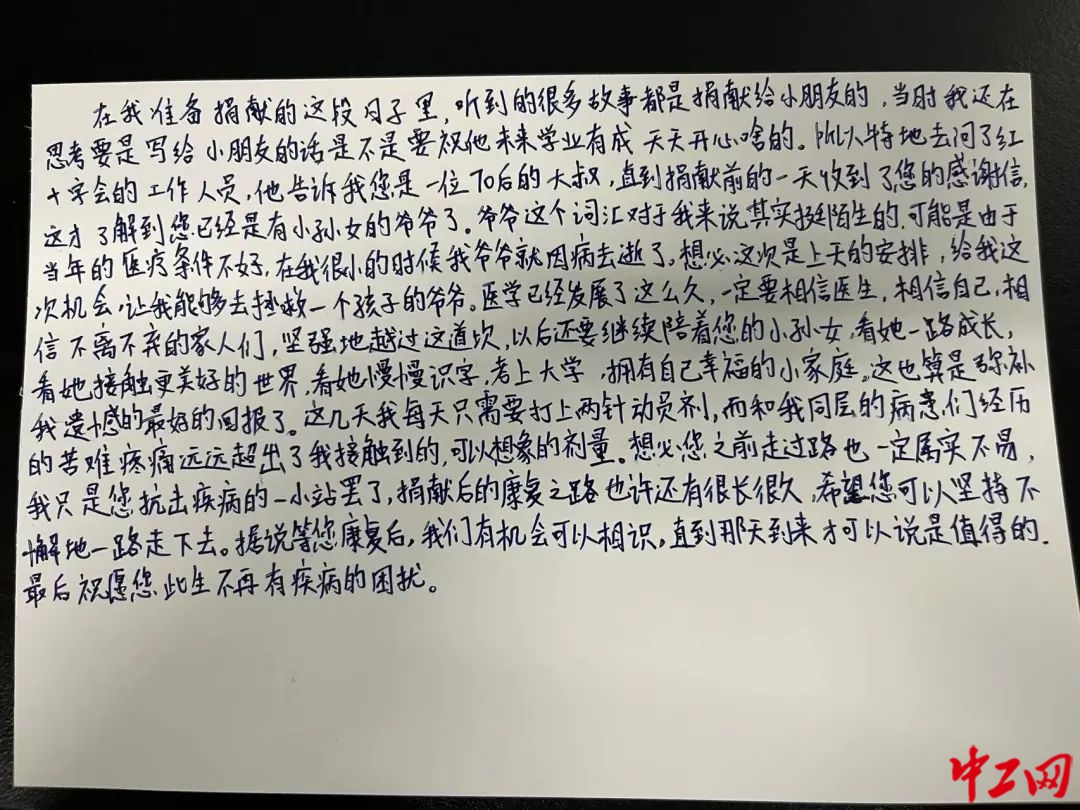 在我准备捐献的这段日子里，听到的很多故事都是捐献给小朋友的，当时我还在
思考要是写给小朋友的话是不是要祝他未来学业有成 天天开心啥的。所以特地去问了红
十字会的工作人员，他告诉我您是一位70后的大叔，直到捐献前的一天收到了您的感谢信，
这才了解到您已经是有小孙女的爷爷了。爷爷这个词汇对于我来说其实挺陌生的，可能是由于
当年的医疗条件不好，在我很小的时候我爷爷就因病去逝了。想必这次是上天的安排，给我这
次机会，让我能够去拯救一个孩子的爷爷。医学已经发展了这么久，一定要相信医生，相信自己，相
信不离不弃的家人们，坚强地越过这道坎，以后还要继续陪着您的小孙女，看她一路成长，
看她接触更美好的世界，看她慢慢识字，考上大学，拥有自己幸福的小家庭。这也算是弥补
我遗憾的最好的回报了。这几天我每天只需要打上两针动员剂，而和我同层的病患们经历
的苦难疼痛远远超出了我接触到的，可以想象的剂量。想必您之前走过路也一定属实不易，
我只是您抗击疾病的一小站罢了，捐献后的康复之路也许还有很长很久，希望您可以坚持不
懈地一路走下去。据说等您康复后，我们有机会可以相识，直到那天到来才可以说是值得的.
最后祝愿您此生不再有疾病的困扰。
中工网